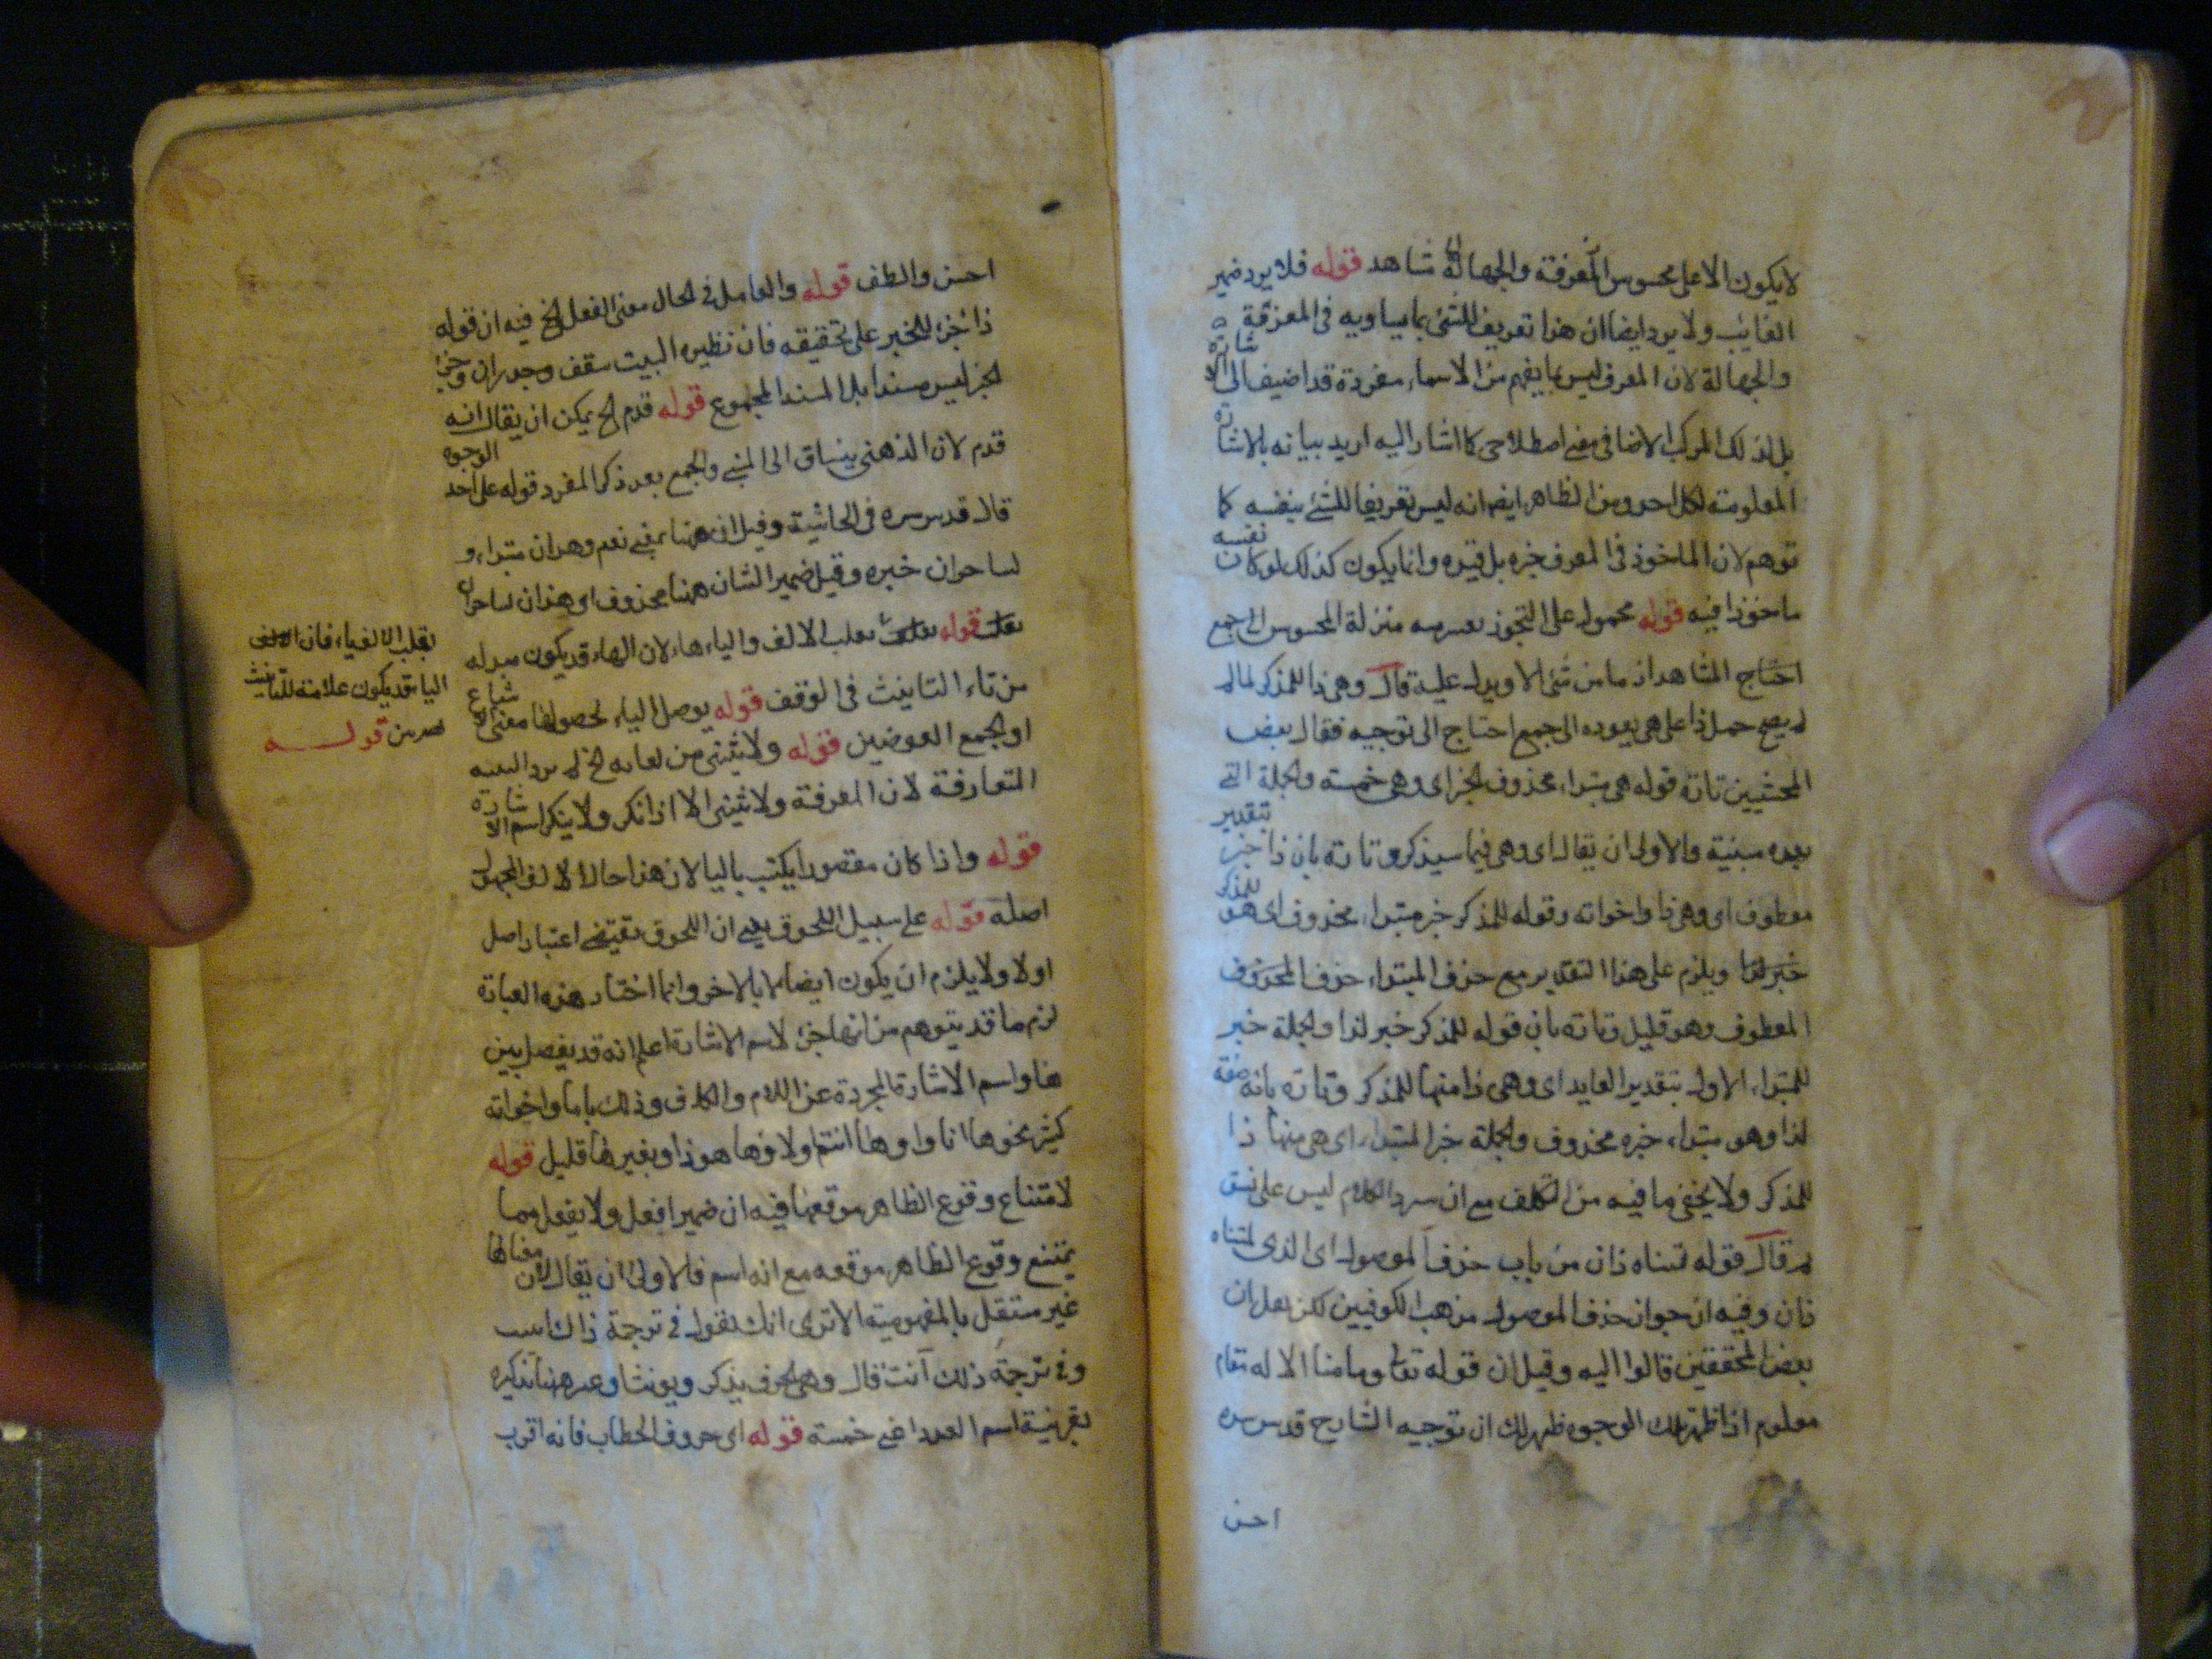 لا يكون الا على محسوس المعرفة والجهالة شاهد قوله فلا يرد ضمير
الغايب ولا يرد ايضا ان هذا تعريف للشئ بما يساويه فى المعرفة
والجهالة لان المعرف ليس بما يفهم من الاسماء مفردة قد اضيف الى الاشارة
بل لذلك المركب الاضافى معنى اصطلاحى كما اشار اليه اريد بيانه بالاشارة
المعلومة لكل احد ومن الظاهر ايضا انه ليس تعريفا للشئ بنفسه كما
توهم لان الماخوذ فى المعرف جزء بل قيده وانما يكون كذلك لو كان نفسه
ماخوذا فيه قوله محمول على التجوز منزلة المحسوس الى جمع
احتاج المشاهد اذ ما من شئ الا ويدل عليه قال وهى ذا للمذكر لما لم
لم يصح حمل ذا على هى بعوده الى جميع احتاج الى توجيه فقال بعض
المحشيين تارة قوله هى مبتداء محذوف الخبر اى وهى خمسة والجملة التى
بعده مبنية والاولى ان يقال اى وهى فيما سيذكر وتارة بان ذا خبر بتقدير
معطوف اى وهى ذا واخواته وقوله للمذكر خبر مبتداء محذوف اى هو للمذكر
خبر لذا ويلزم على هذا التقدير مع حذف المبتداء حذف المحذوف
المعطوف وهو قليل وتارة بان قوله للمذكر خبر لذا والجملة خبر
للمبتداء الاول بتقدير العايد اى وهى ذا منها للمذكر وتارة بانه صفة
لذا وهو مبتداء خبره محذوف والجملة خبر المبتداء اى هى منها ذا
للمذكر ولا يخفى ما فيه من التكلف مع ان سرد الكلام ليس على نسق
قال قوله لمثناه ذان من باب حذف الموصول اى الذى لمثناه
ذان وفيه ان جواز حذف الموصول مذهب الكوفيين لكن لعل ان
بعض المحققين قالوا اليه وقيل ان قوله تعا وما منا الا له مقام
معلوم اذا ظهر تلك الوجوه ظهر لك ان توجيه الشارح قدس سره
احسن
احسن والطف قوله والعامل فى الحال معنى الفعل الخ فيه ان قوله
ذا جزء للخبر على تحقيقه فان نظيره البيت سقف وجدران وجزء
الخبر ليس مسندا بل المسند المجموع قوله قدم الخ يمكن ان يقال انه
قدم لان الذهن ينساق الى المثنى والجمع بعد ذكر المفرد قوله على احد الوجوه
قال قدس سره فى الحاشية وقيل ان ههنا بمعنى نعم وهذان مبتداء و
لساحران خبره وقيل ضمير الشان ههنا محذوف اى هذان لساحران
قوله بقلب الالف والياء هاء لان الهاء قد يكون مبدلة
من تاء التانيث فى الوقف قوله بوصل الياء لحصولها معنى الاشباع
او لجمع العوضين قوله ولا يثنى من لغاته الخ لم يرد التثنية
المتعارفة لان المعرفة ولا يثنى الا اذا نكر ولا ينكر اسم الاشارة
قوله واذا كان مقصورا يكتب باليا لان هذا حال الالف المجهول
اصله قوله على سبيل اللحوق يعنى ان اللحوق يقتضى اعتبار اصل
اولا ولا يلزم ان يكون ايضالها بالاخر وانما اختار هذه العبارة
لزم ما قد يتوهم من انها جزء لاسم الاشارة اعلم انه قد يفصل بين
ها واسم الاشارة المجردة عن اللام والكاف وذلك باما واخواته
كثير نحو ها انا ذا وها انتم اولاء وها هو ذا وبغيرها قليل قوله
لامتناع وقوع الظاهر موقعها فيه ان ضمير افعل ولا يفعل مما
يمتنع وقوع الظاهر موقعه مع انه اسم فالاولى ان يقال لان معناها
غير مستقل بالمفهومية الا ترى انك تقول فى ترجمة ذاك
وفى ترجمة ذلك آنت قال وهى الحرف يذكر ويونث وعبر ههنا بتذكيره
بقرنية اسم العدد اعنى خمسة قوله اى حروف الخطاب فانه اقرب
بقلب الالف ياء فان
الياء قد يكون علامة للتانيث
من قوله